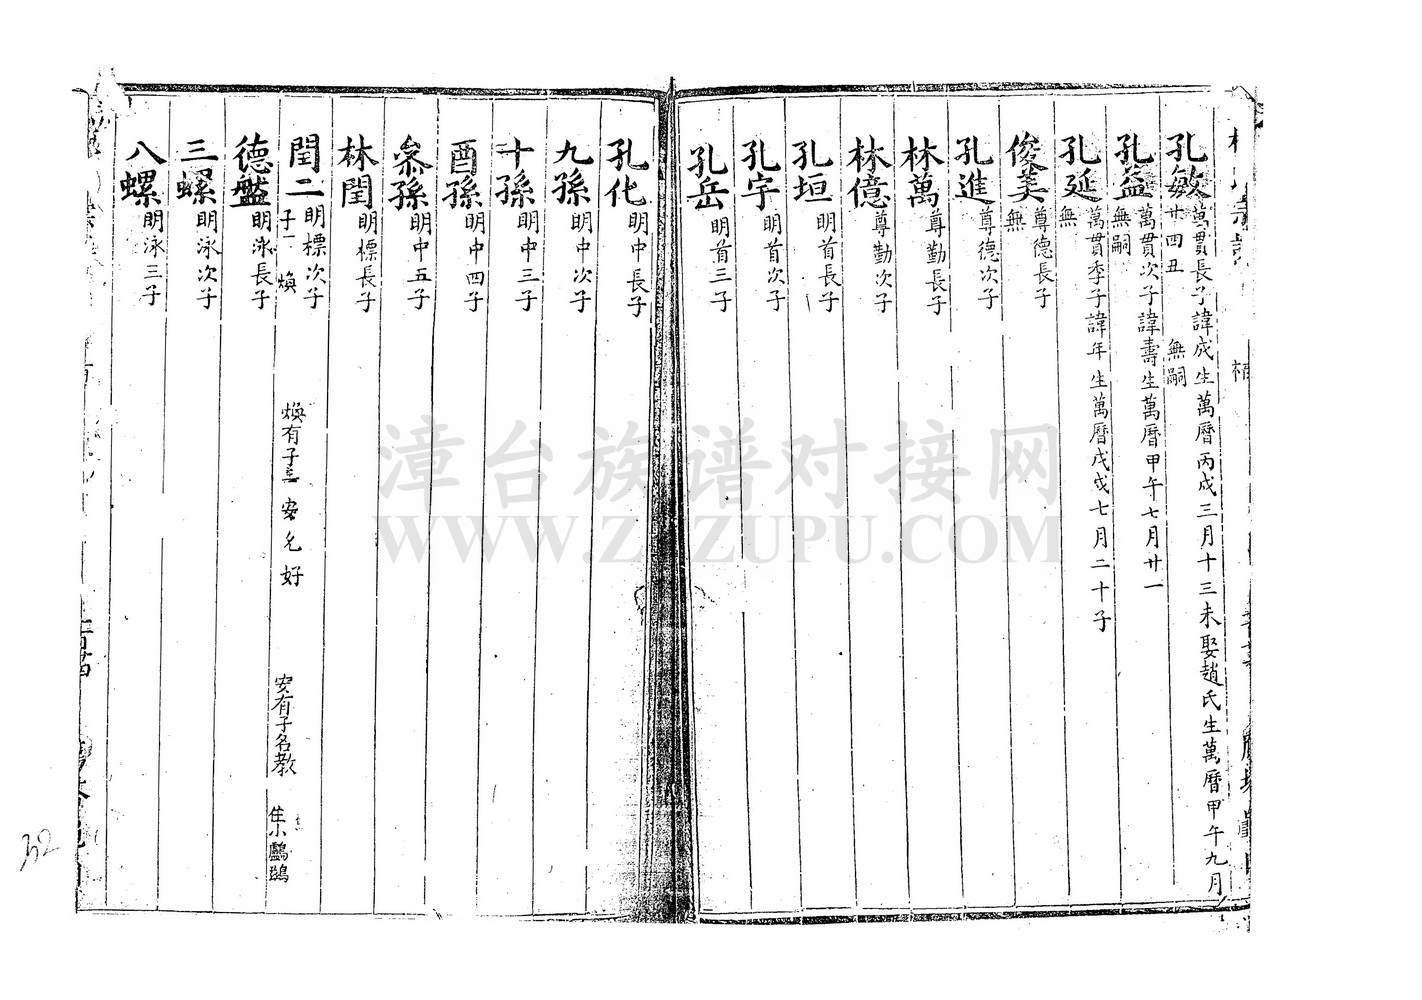 孔敏 萬貫長子諱成生萬曆丙戌三月十三未娶趙氏生萬曆甲午九月
廿四丑 無嗣
孔益 萬貫次子諱壽生萬曆甲午七月廿一
無嗣
孔延 萬貫季子諱年生萬曆戊戌七月二十子
無
俊美 尊德長子
無
孔進 尊德次子
林萬 尊勤長子
林億 尊勤次子
孔垣 明首長子
孔宇 明首次子
孔岳 明首三子
孔化 明中長子
九孫 明中次子
十孫 明中三子
酉孫 明中四子
叅孫 明中五子
林閏 明標長子
閏二 明標次子
子一 煥 煥有子三 安 允 好 安有子名教 隹小鸕鶿
德盤 明泳長子
三螺 明泳次子
八螺 明泳三子
32
漳台族谱对接网
WWW.ZTZUPU.COM